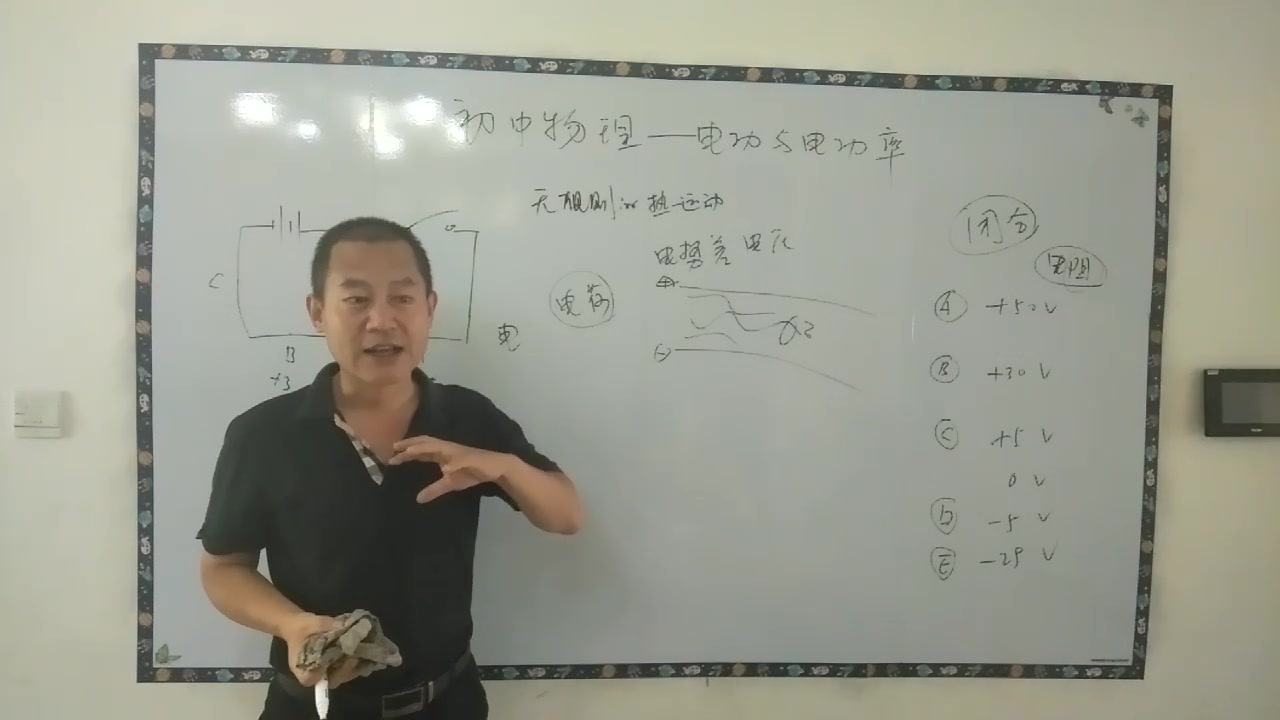 初中物理——电功与电功率
无规则的热运动
电势差 电压
闭合
电阻
C
电荷
B
+3
电
+
A +50V
B +30V
C +5V
0V
D -5V
E